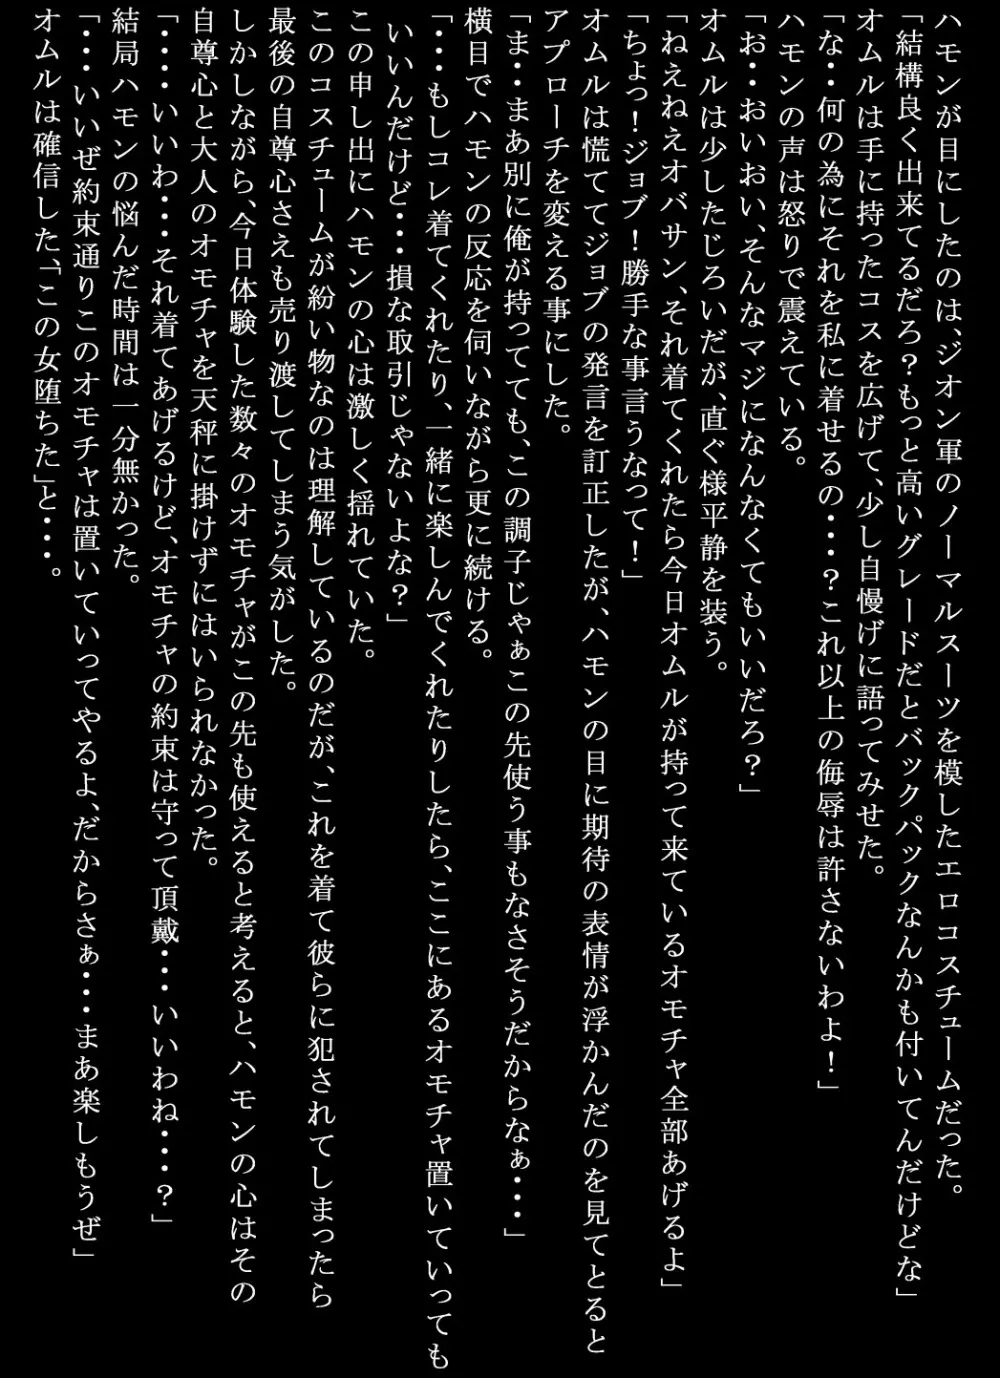 ハモンが目にしたのは、ジオン軍のノーマルスーツを模したエロコスチュームだった。
「結構良く出来てるだろ？もっと高いグレードだとバックパックなんかも付いてんだけどな」
オムルは手に持ったコスを広げて、少し自慢げに語ってみせた。
「な・・何の為にそれを私に着せるの・・・？これ以上の侮辱は許さないわよ！」
ハモンの声は怒りで震えている。
「お・・おいおい、そんなマジになんなくてもいいだろ？」
オムルは少したじろいだが、直ぐ様平静を装う。
「ねえねえオバサン、それ着てくれたら今日オムルが持って来ているオモチャ全部あげるよ」
「ちょっ！ジョブ！勝手な事言うなって！」
オムルは慌ててジョブの発言を訂正したが、ハモンの目に期待の表情が浮かんだのを見てとると
アプローチを変える事にした。
「ま・・まあ別に俺が持ってても、この調子じゃぁこの先使う事もなさそうだからなぁ・・・」
横目でハモンの反応を伺いながら更に続ける。
「・・・もしコレ着てくれたり、一緒に楽しんでくれたりしたら、ここにあるオモチャ置いていっても
いいんだけど・・・損な取引じゃないよな？」
この申し出にハモンの心は激しく揺れていた。
このコスチュームが紛い物なのは理解しているのだが、これを着て彼らに犯されてしまったら
最後の自尊心さえも売り渡してしまう気がした。
しかしながら、今日体験した数々のオモチャがこの先も使えると考えると、ハモンの心はその
自尊心と大人のオモチャを天秤に掛けずにはいられなかった。
「・・・・いいわ・・・それ着てあげるけど、オモチャの約束は守って頂戴・・・いいわね・・・？」
結局ハモンの悩んだ時間は一分無かった。
「・・・いいぜ約束通りこのオモチャは置いていってやるよ、だからさぁ・・・まあ楽しもうぜ」
オムルは確信した、「この女堕ちた」と・・・。